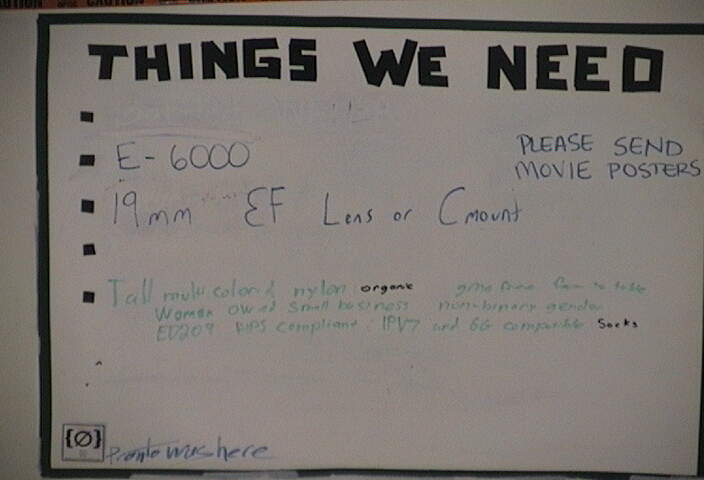 CAUTION
THINGS WE NEED
E-6000
PLEASE SEND
MOVIE POSTERS
19mm EF Lens or Cmount
Tall multi colored nylon organic free to table
Women owned Small business non-binary gender
ED209 FIPS compliant: IPV7 and 6G compatible Socks
{Ø}
Pronto was here